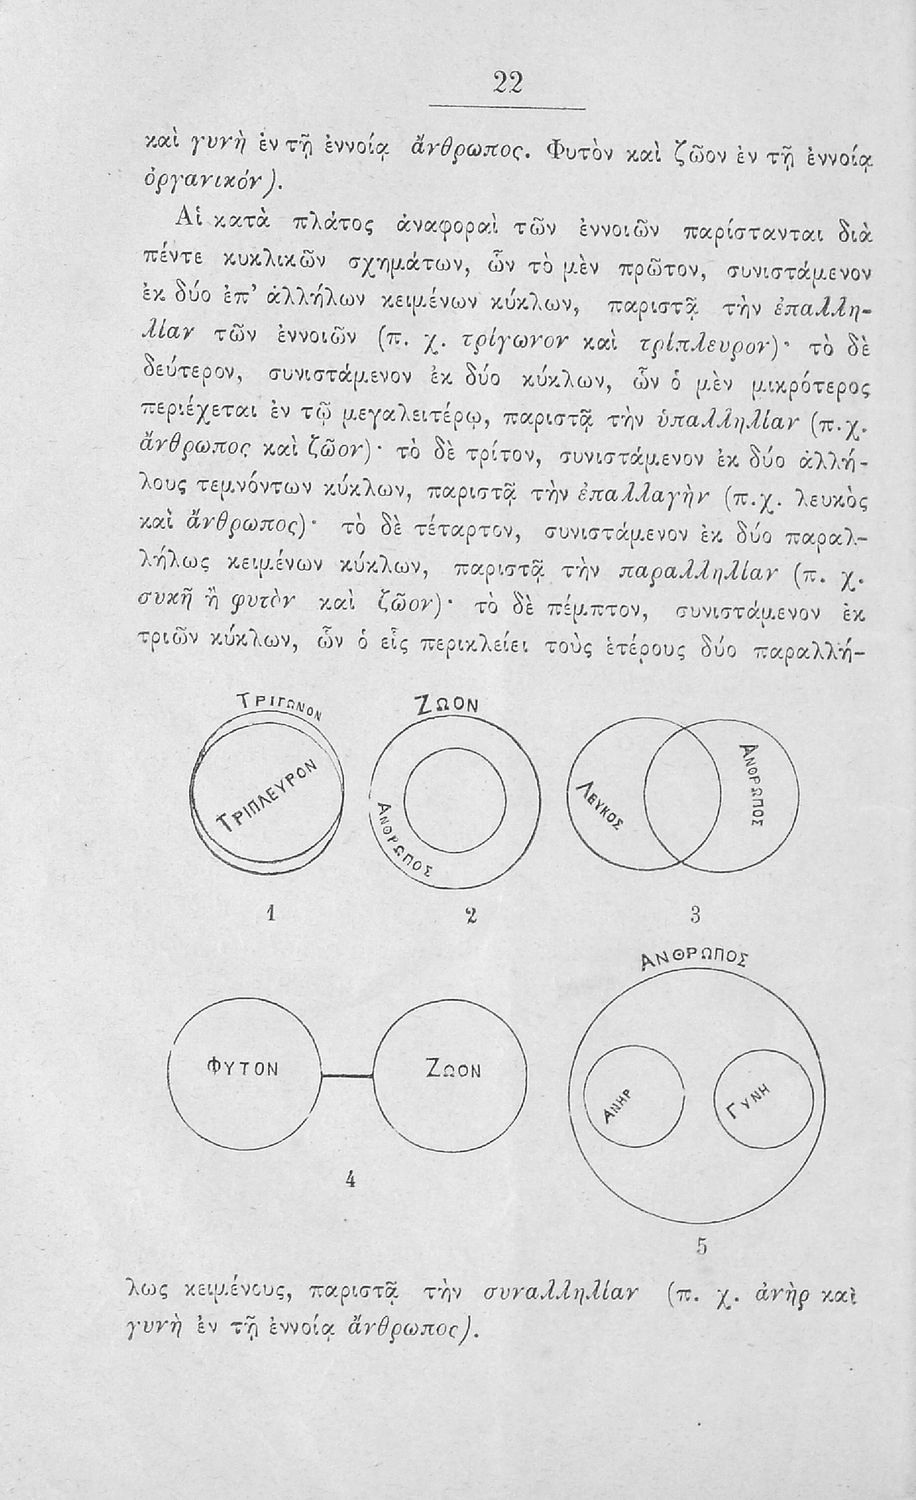 22
καὶ γυνὴ ἐν τῇ ἐννοίᾳ ἄνθρωπος. Φυτὸν καὶ ζῶον ἐν τῇ ἐννοίᾳ
ὀργανικόν).
Αἱ κατὰ πλάτος ἀναφοραὶ τῶν ἐννοιῶν παρίστανται διὰ
πέντε κυκλικῶν σχημάτων, ὧν τὸ μὲν πρῶτον, συνιστάμενον
ἐκ δύο ἐπ’ ἀλλήλων κειμένων κύκλων, παριστᾷ τὴν ἐπαλλη-
λίαν τῶν ἐννοιῶν (π. χ. τρίγωνον καὶ τρίπλευρον)· τὸ δὲ
δεύτερον, συνιστάμενον ἐκ δύο κύκλων, ὧν ὁ μὲν μικρότερος
περιέχεται ἐν τῷ μεγαλειτέρῳ, παριστᾷ τὴν ὑπαλληλίαν (π.χ.
ἄνθρωπος καὶ ζῶον)· τὸ δὲ τρίτον, συνιστάμενον ἐκ δύο ἀλλή-
λους τεμνόντων κύκλων, παριστᾷ τὴν ἐπαλλαγὴν (π.χ. λευκὸς
καὶ ἄνθρωπος)· τὸ δὲ τέταρτον, συνιστάμενον ἐκ δύο παραλ-
λήλως κειμένων κύκλων, παριστᾷ τὴν παραλληλίαν (π. χ.
συκῆ ἢ φυτὸν καὶ ζῶον)· τὸ δὲ πέμπτον, συνιστάμενον ἐκ
τριῶν κύκλων, ὧν ὁ εἷς περικλείει τοὺς ἑτέρους δύο παραλλή-
ΤΡΙΓΩΝΟΝ
ΤΡΙΠΛΕΥΡΟΝ
1
ΖΩΟΝ
ΑΝΘΡΩΠΟΣ
2
ΛΕΥΚΟΣ
ΑΝΘΡΩΠΟΣ
3
ΦΥΤΟΝ
ΖΩΟΝ
4
ΑΝΘΡΩΠΟΣ
ΑΝΗΡ
ΓΥΝΗ
5
λως κειμένους, παριστᾷ τὴν συναλληλίαν (π. χ. ἀνὴρ καὶ
γυνὴ ἐν τῇ ἐννοίᾳ ἄνθρωπος).